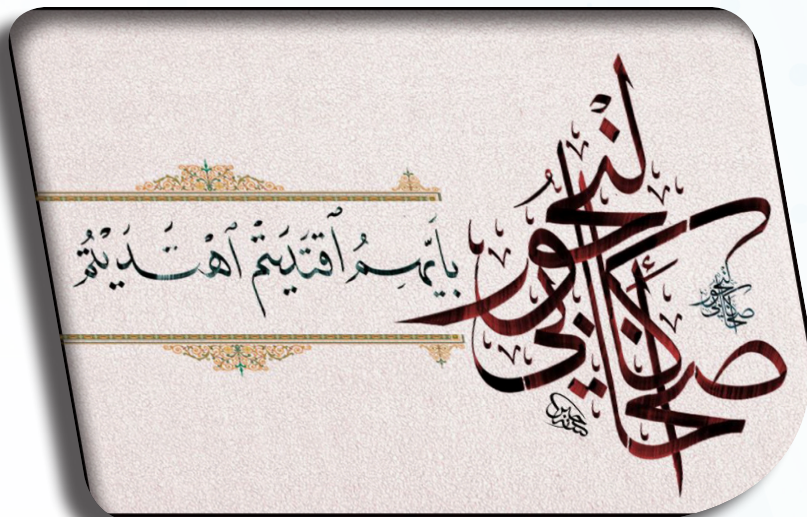 أصحابي كالنجوم
بأيهم أقتديتم أهتديتم